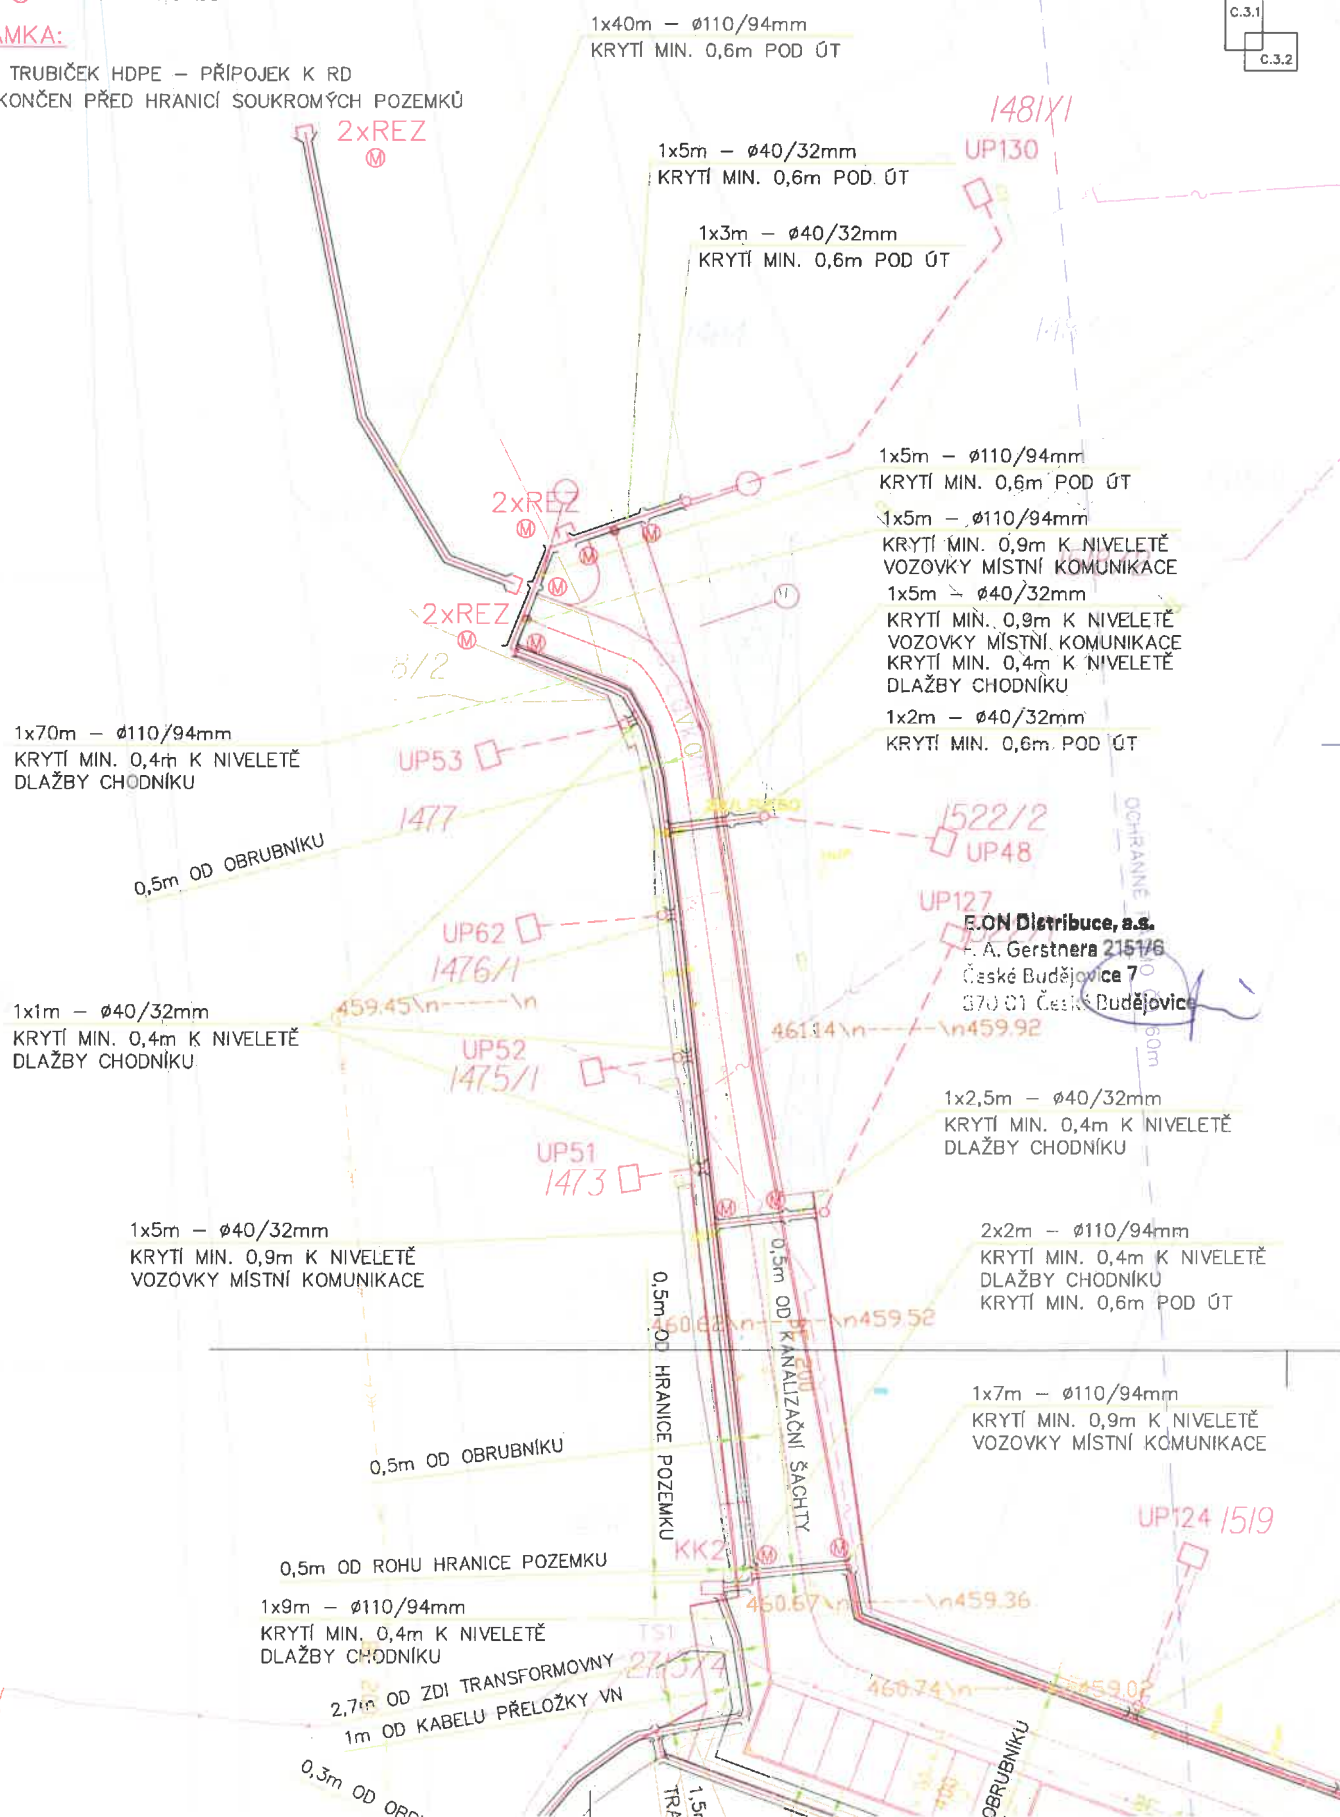 C.3.1
C.3.2
1x40m – ø110/94mm
KRYTÍ MIN. 0,6m POD ÚT
TRUBIČEK HDPE – PŘÍPOJEK K RD
PŘED HRANICÍ SOUKROMÝCH POZEMKŮ
2xREZ
M
1x5m – ø40/32mm
KRYTÍ MIN. 0,6m POD ÚT
UP130
1x3m – ø40/32mm
KRYTÍ MIN. 0,6m POD ÚT
1x5m – ø110/94mm
KRYTÍ MIN. 0,6m POD ÚT
2xREZ
M
M
M
M
1x5m – ø110/94mm
KRYTÍ MIN. 0,9m K NIVELETĚ
VOZOVKY MÍSTNÍ KOMUNIKACE
1x5m – ø40/32mm
KRYTÍ MIN. 0,9m K NIVELETĚ
VOZOVKY MÍSTNÍ KOMUNIKACE
KRYTÍ MIN. 0,4m K NIVELETĚ
DLAŽBY CHODNÍKU
2xREZ
M
M
1x2m – ø40/32mm
KRYTÍ MIN. 0,6m POD ÚT
1x70m – ø110/94mm
KRYTÍ MIN. 0,4m K NIVELETĚ
DLAŽBY CHODNÍKU
UP53
1477
0,5m OD OBRUBNÍKU
1522/2
UP48
OCHRANNÉ
60m
UP127
E.ON Distribuce, a.s.
F. A. Gerstnera 2151/6
České Budějovice 7
370 01 České Budějovice
UP62
1476/1
459.45\n-----\n
461.14\n-----\n459.92
1x1m – ø40/32mm
KRYTÍ MIN. 0,4m K NIVELETĚ
DLAŽBY CHODNÍKU
UP52
1475/1
1x2,5m – ø40/32mm
KRYTÍ MIN. 0,4m K NIVELETĚ
DLAŽBY CHODNÍKU
UP51
1473
M
M
1x5m – ø40/32mm
KRYTÍ MIN. 0,9m K NIVELETĚ
VOZOVKY MÍSTNÍ KOMUNIKACE
2x2m – ø110/94mm
KRYTÍ MIN. 0,4m K NIVELETĚ
DLAŽBY CHODNÍKU
KRYTÍ MIN. 0,6m POD ÚT
0,5m OD HRANICE POZEMKU
0,5m OD KANALIZAČNÍ ŠACHTY
460.82\n-----\n459.52
1x7m – ø110/94mm
KRYTÍ MIN. 0,9m K NIVELETĚ
VOZOVKY MÍSTNÍ KOMUNIKACE
0,5m OD OBRUBNÍKU
UP124 1519
KK2
M
M
0,5m OD ROHU HRANICE POZEMKU
1x9m – ø110/94mm
KRYTÍ MIN. 0,4m K NIVELETĚ
DLAŽBY CHODNÍKU
460.67\n-----\n459.36
TS1
2,7m OD ZDI TRANSFORMOVNY
1m OD KABELU PŘELOŽKY VN
0,3m OD
OBRUBNÍKU